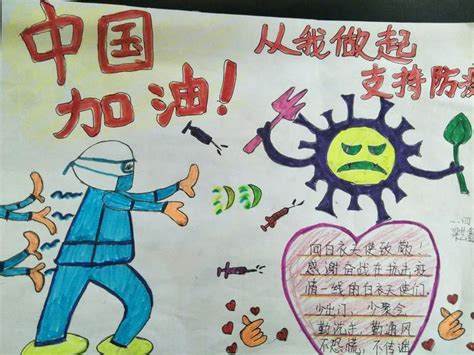 中国
加油!
从我做起
支持防疫
向白衣天使致敬!
感谢奋战在抗击疫
情一线的白衣天使们.
少出门 少聚会
勤洗手 勤通风
不恐慌,不传谣